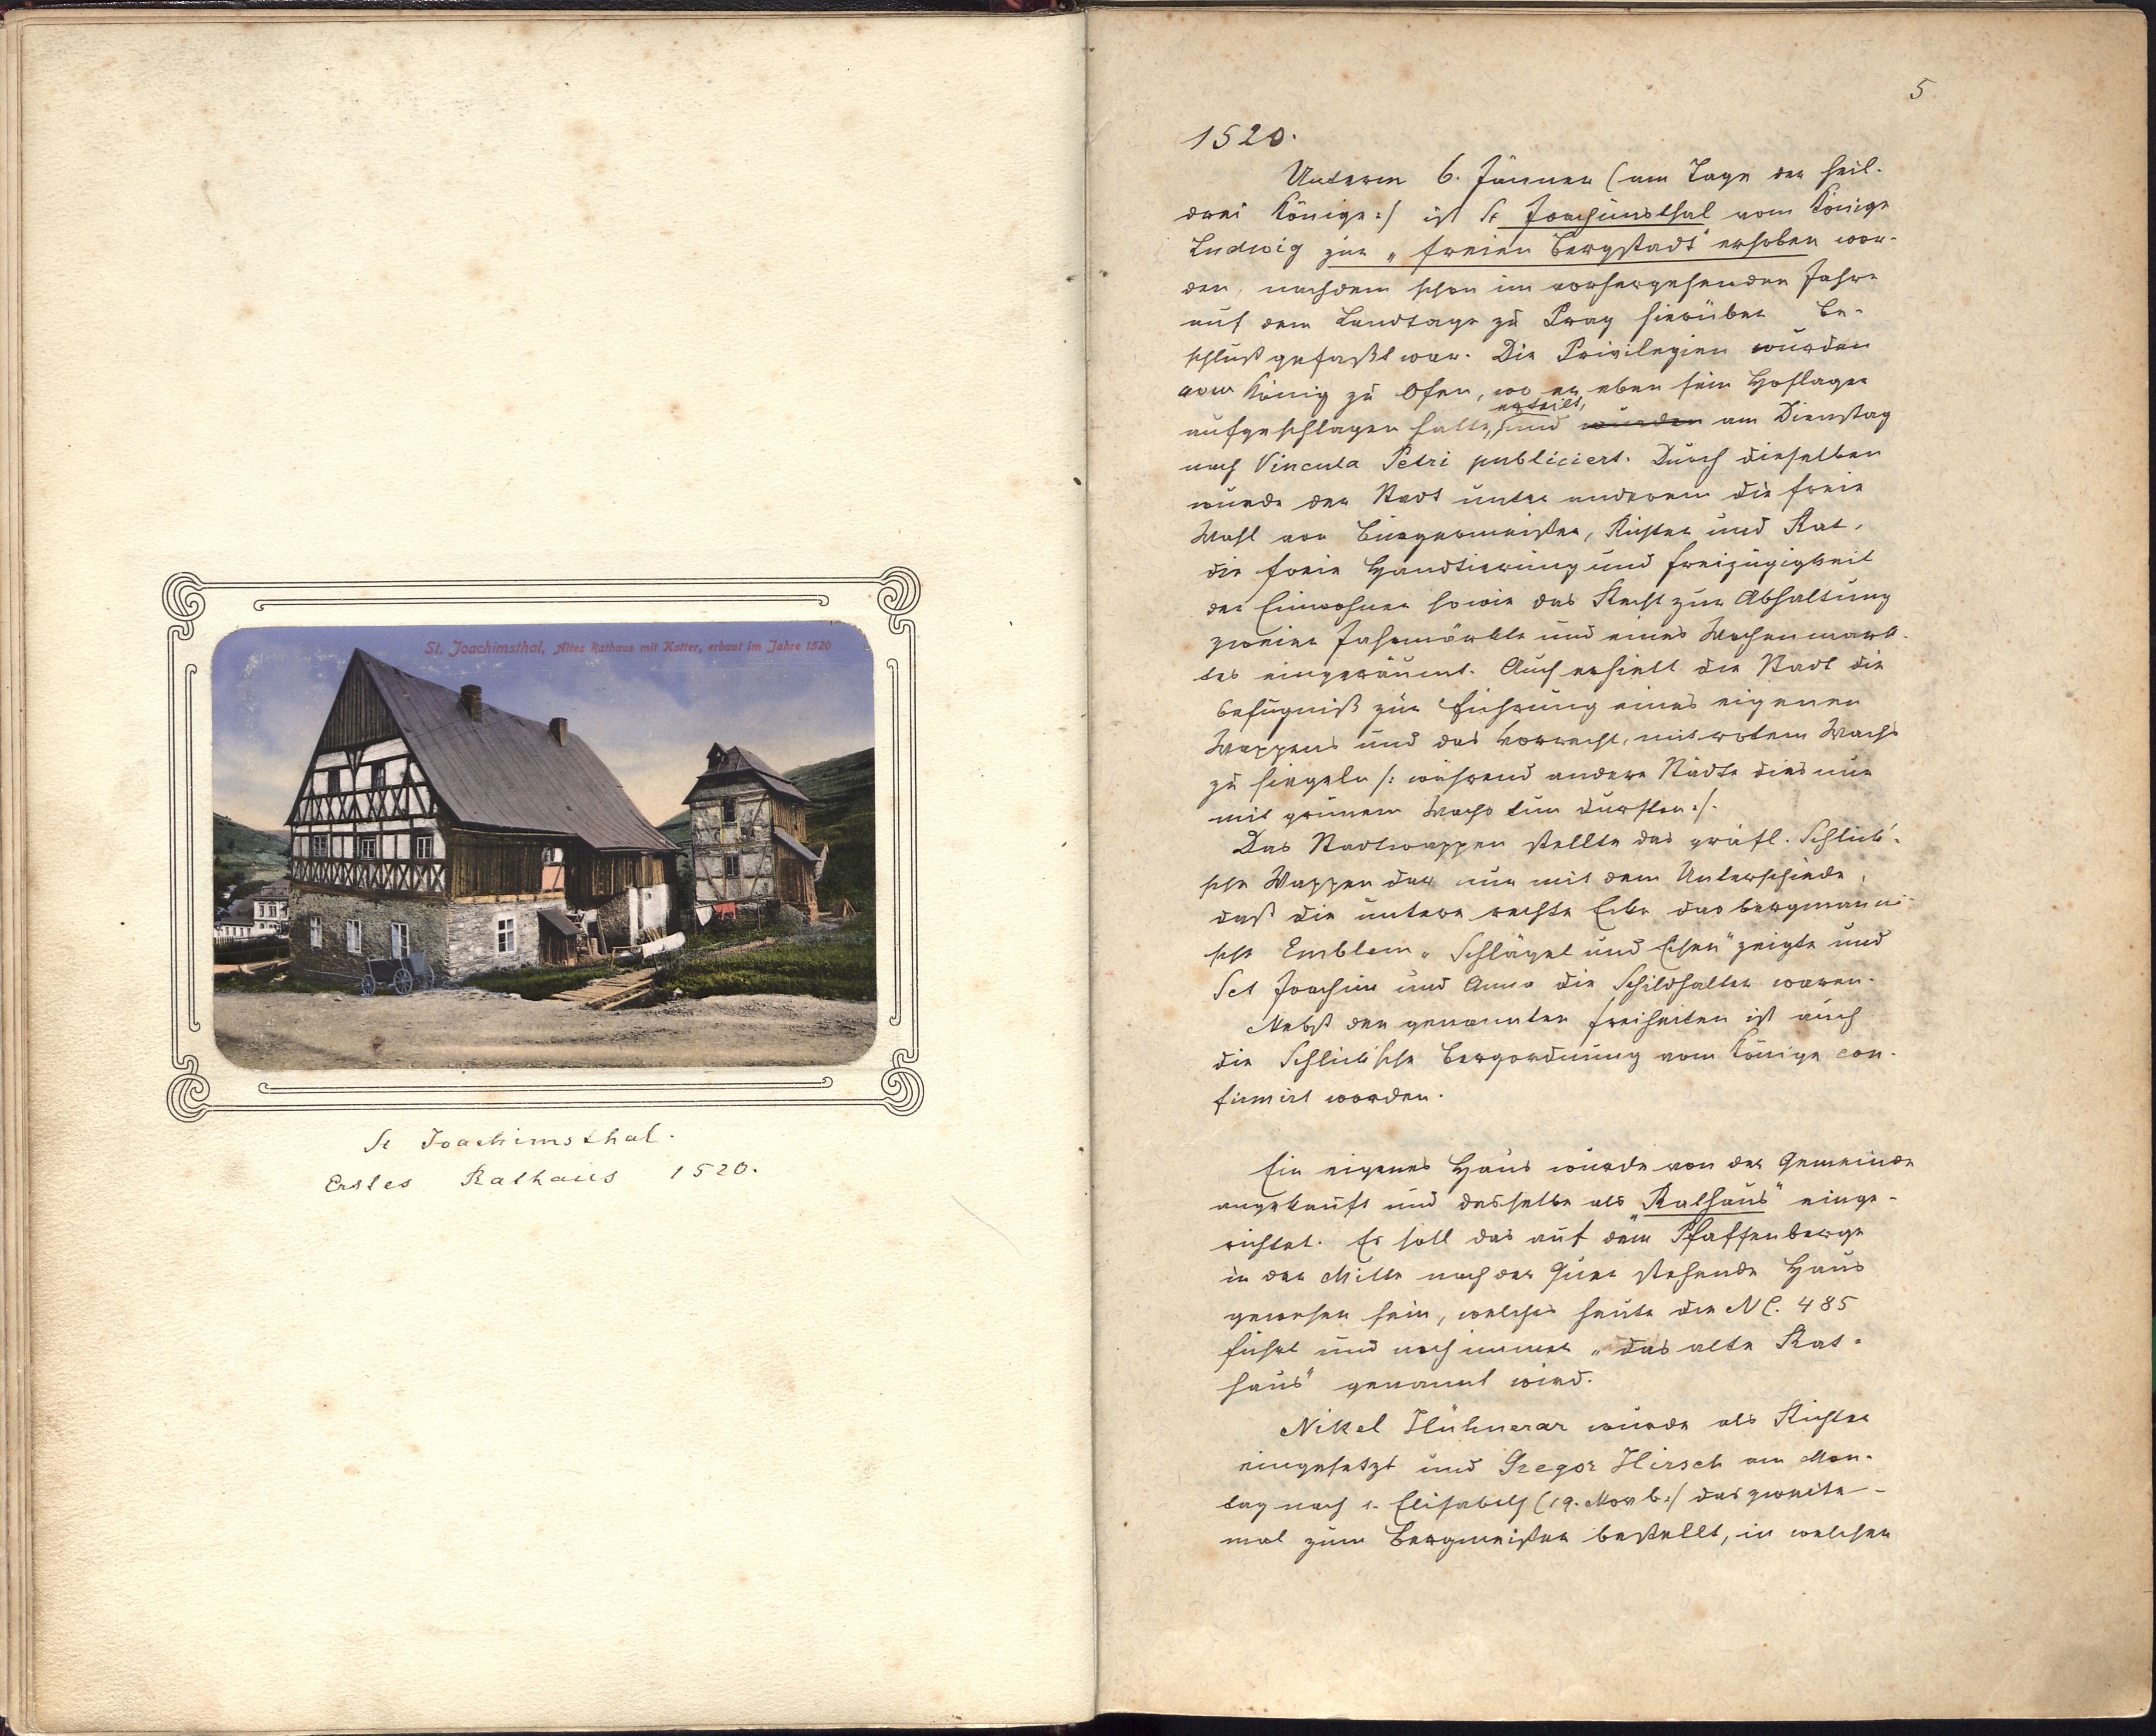 St. Joachimsthal, Altes Rathaus mit Kotter, erbaut im Jahre 1520
St Joachimsthal.
Erstes Rathaus 1520.
5
1520.
Unterm 6. Jänner (am Tage der heil.
drei Könige:/ ist St Joachimsthal vom Könige
Ludwig zur „freien Bergstadt" erhoben wor-
den, nachdem schon im vorhergehenden Jahre
auf dem Landtage zu Prag hierüber Be-
schluß gefaßt war. Die Privilegien wurden
vom König zu Ofen, wo er eben sein Hoflager
erteilt,
aufgeschlagen hatte, und wurden am Dienstag
nach Vincula Petri publiciert. Durch dieselben
wurde der Stadt unter anderem die freie
Wahl von Bürgermeister, Richter und Rat,
die freie Handtierung und Freizügigkeit
der Einwohner sowie das Recht zur Abhaltung
zweier Jahrmärkte und eines Wochenmark-
tes eingeräumt. Auch erhielt die Stadt die
Befugniß zur Führung eines eigenen
Wappens und das Vorrecht, mit rotem Wachs
zu siegeln /: während andere Städte dies nur
mit grünem Wachs tun durften :/.
Das Stadtwappen stellte das gräfl. Schlick'-
sche Wappen dar nur mit dem Unterschiede,
daß die untere rechte Ecke das bergmänni-
sche Emblem „Schlägel und Eisen" zeigte und
Sct Joachim und Anna die Schildhalter waren.
Nebst den genannten Freiheiten ist auch
die Schlick'sche Bergordnung vom Könige con-
firmirt worden.
Ein eigenes Haus wurde von der Gemeinde
angekauft und dasselbe als „Rathaus" einge-
richtet. Es soll das auf dem Pfaffenberge
in der Mitte nach der Quer stehende Haus
gewesen sein, welches heute die NC. 485
führt und noch immer „das alte Rat-
haus" genannt wird.
Nikel Hühnerar wurde als Richter
eingesetzt und Gregor Hirsch am Mon-
tag nach s. Elisabeth (19. Novb:/ das zweite-
mal zum Bergmeister bestellt, in welcher